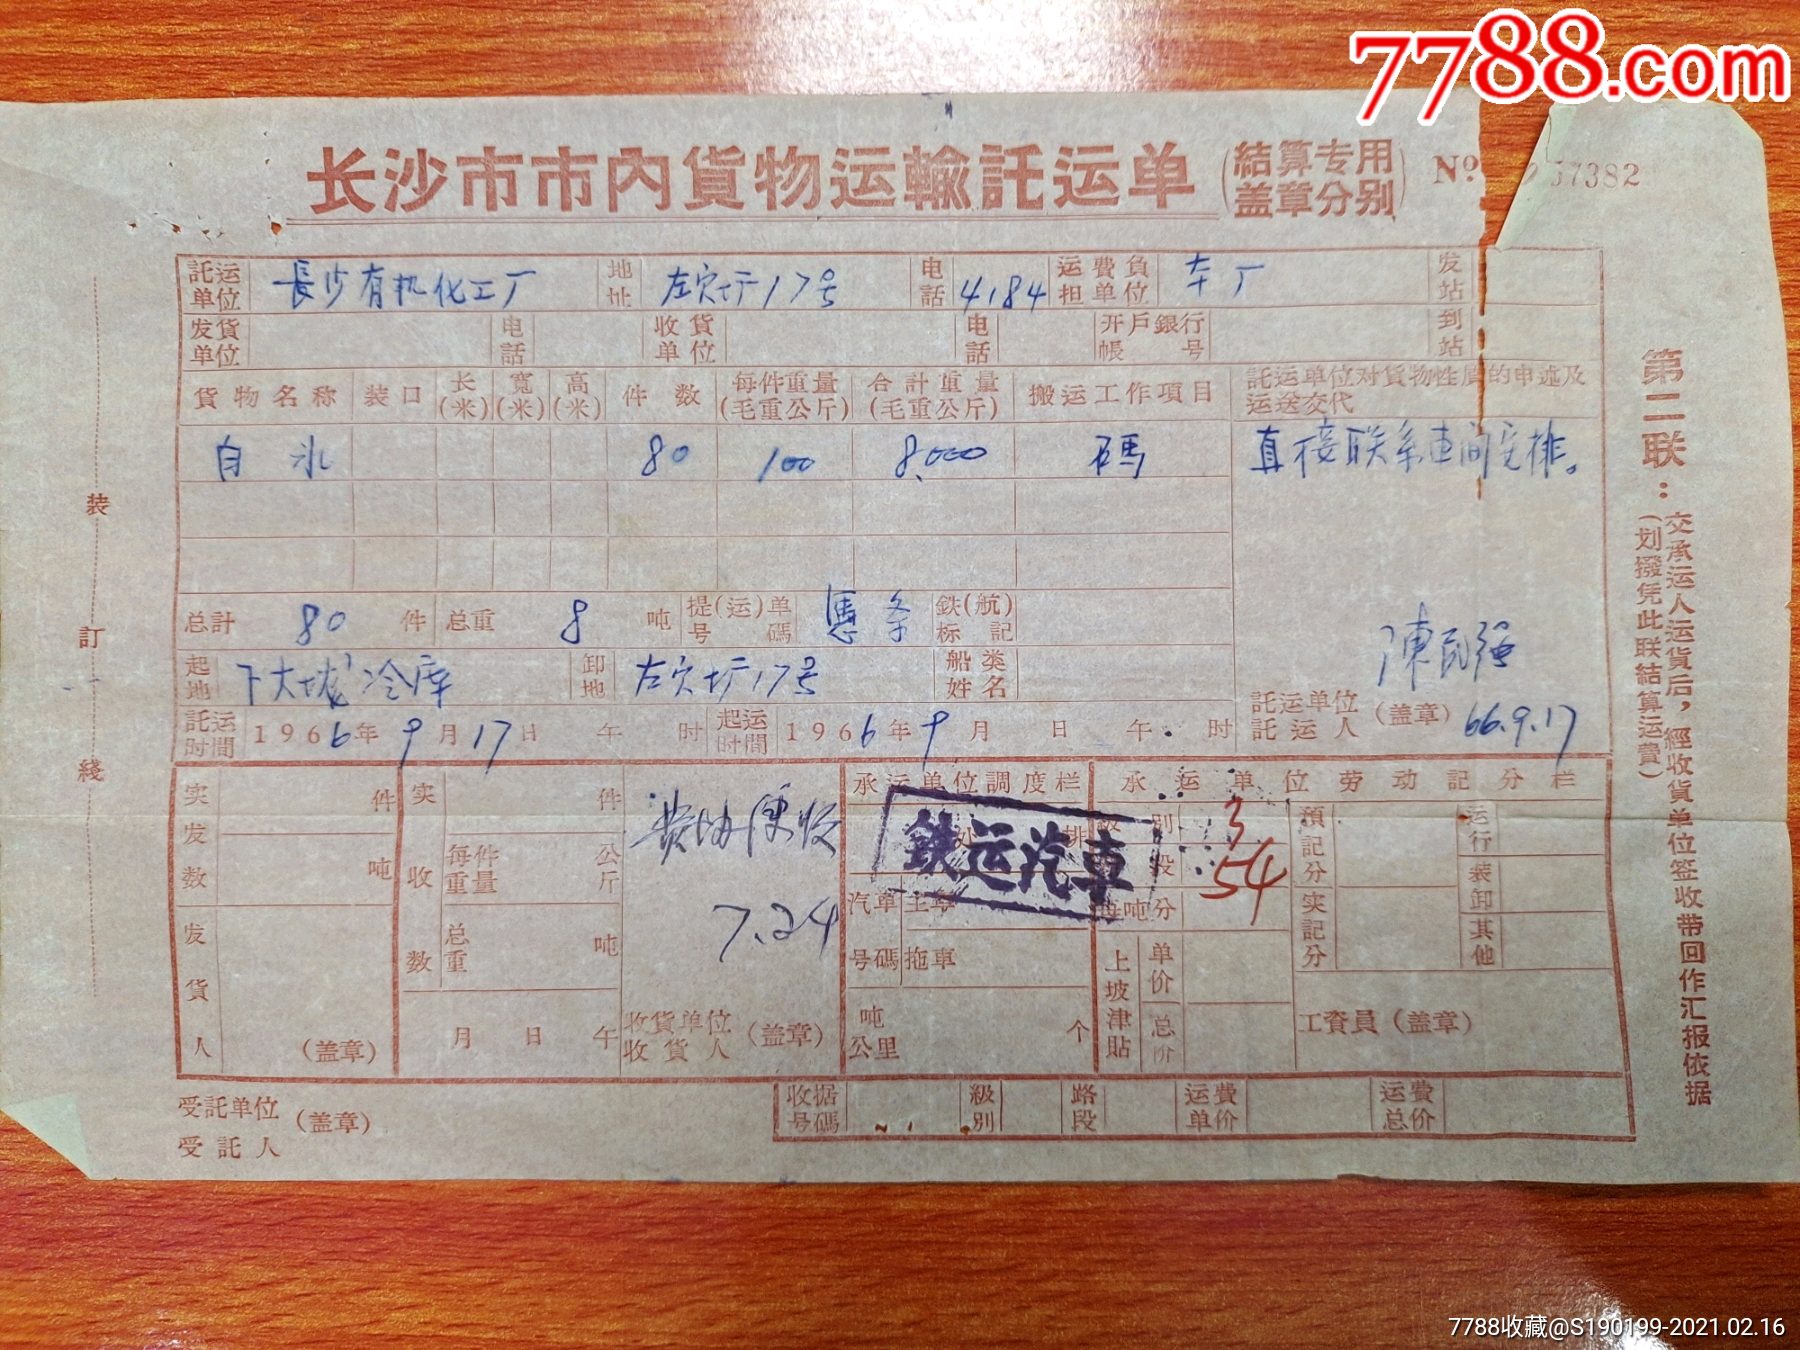 7788.com
长沙市市内貨物运輸託运单
(结算专用
盖章分别)
№ 57382
託运单位 長沙有机化工厂 地址 17号 电話 4184 运費負担单位 本厂 发站
发貨单位 电話 收貨单位 电話 开戶銀行帳号 到站
貨物名称 装口 长(米) 寬(米) 高(米) 件数 每件重量(毛重公斤) 合計重量(毛重公斤) 搬运工作項目 託运单位对貨物性質的申述及运送交代
白冰 80 100 8,000 碼 直接联系車间安排。
总計 80 件 总重 8 吨 提(运)单号碼 憑条 鉄(航)标記
起地 冷库 卸地 17号 船类姓名
陳
託运单位
託运人 (盖章) 66.9.17
託运时間 1966年9月17日 午 时 起运时間 1966年9月 日 午 时
实发数 件 吨
发貨人 (盖章)
实收数 件
每件重量 公斤
总重 吨
月 日 午
7.24
收貨单位
收貨人 (盖章)
承运单位調度栏
鉄运汽車
汽車号碼 主車
拖車
吨公里 个
承运单位劳动記分栏
級別 3
段 54
每吨分
上坡津貼 单价 总价
預記分 实記分
运行 装卸 其他
工資員(盖章)
受託单位
受託人 (盖章)
收据号碼 級別 路段 运費单价 运費总价
装訂綫
第二联：交承运人运貨后，經收貨单位签收带回作汇报依据
(划撥凭此联結算运費)
7788收藏@S190199-2021.02.16